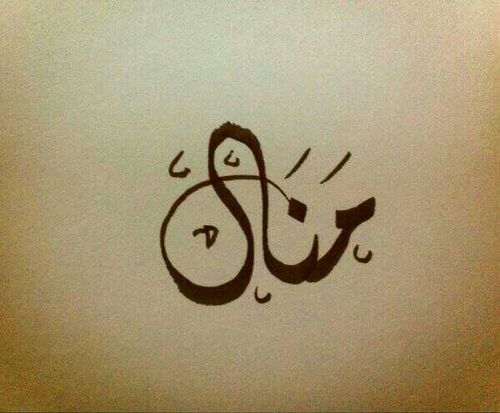 مَنَال